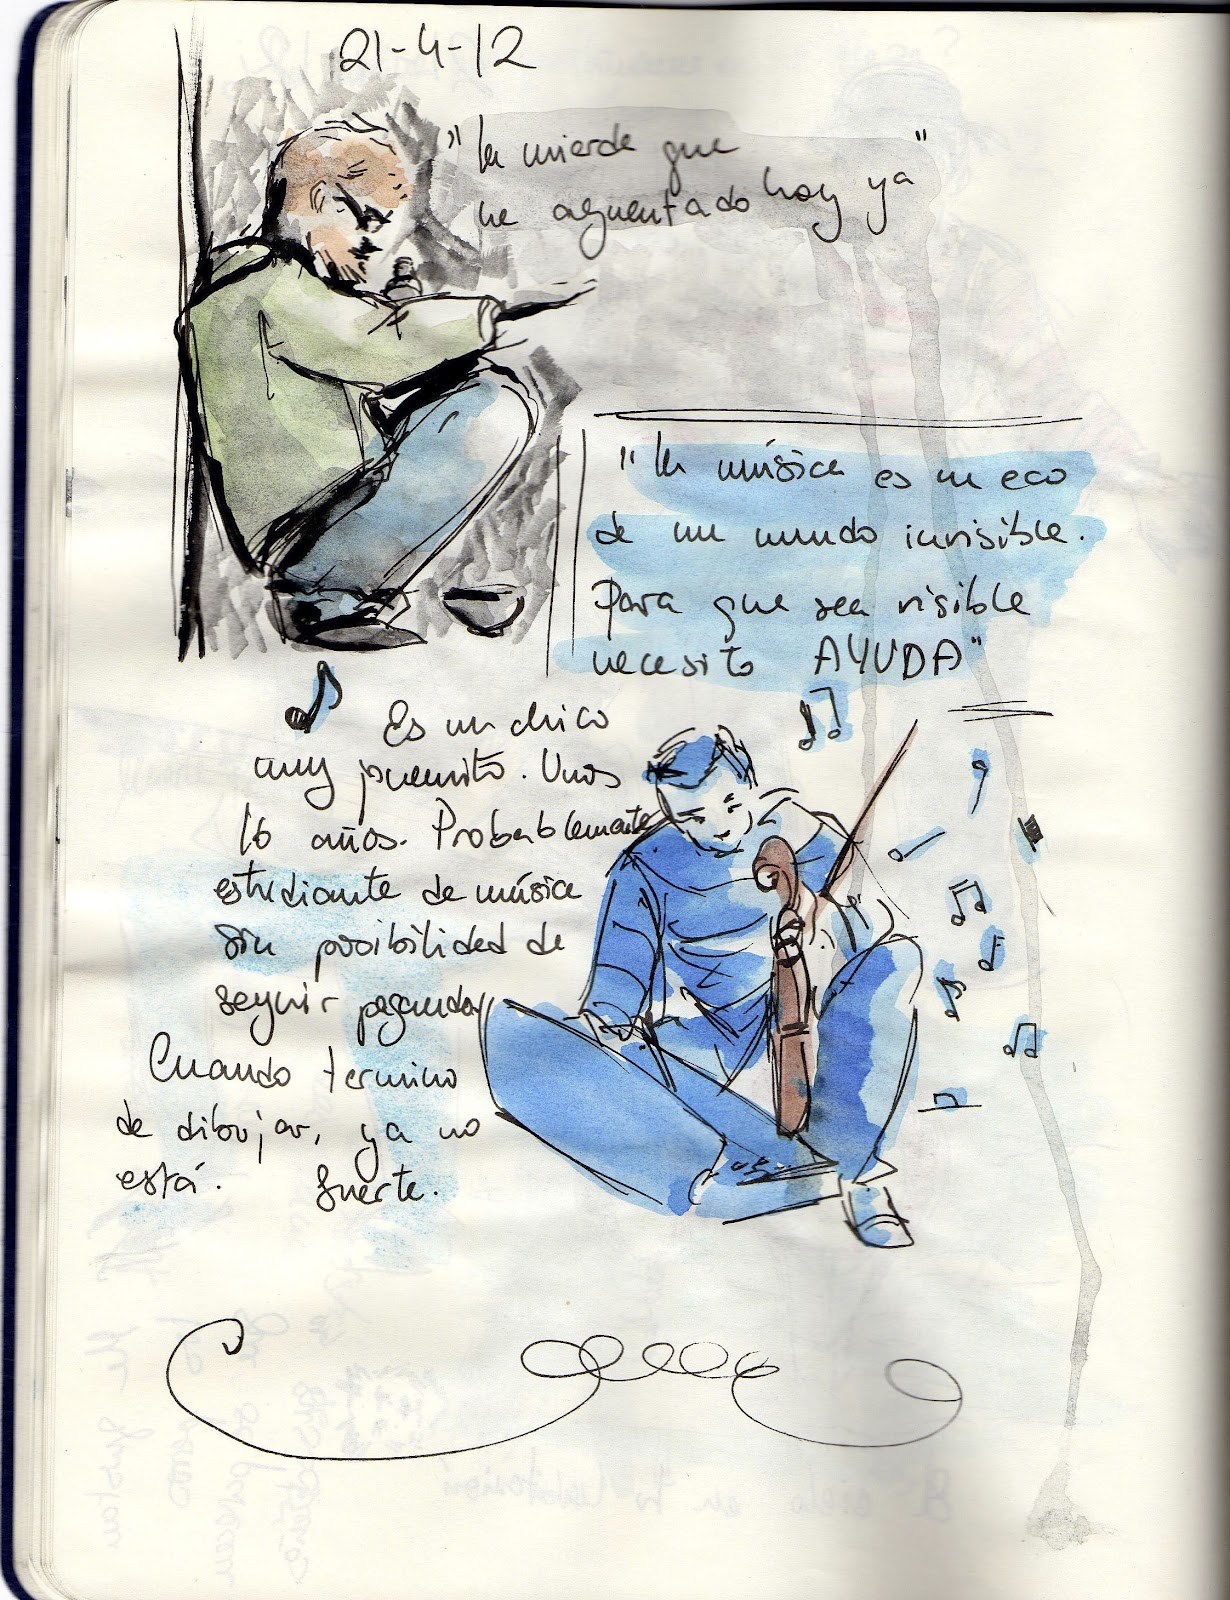 21-4-12
"la mierda que
he aguantado hoy ya"
"la música es un eco
de un mundo invisible.
Para que sea visible
necesito AYUDA"
Es un chico
muy jovencito. Unos
16 años. Probablemente
estudiante de música
sin posibilidad de
seguir pagando.
Cuando termino
de dibujar, ya no
está. Suerte.